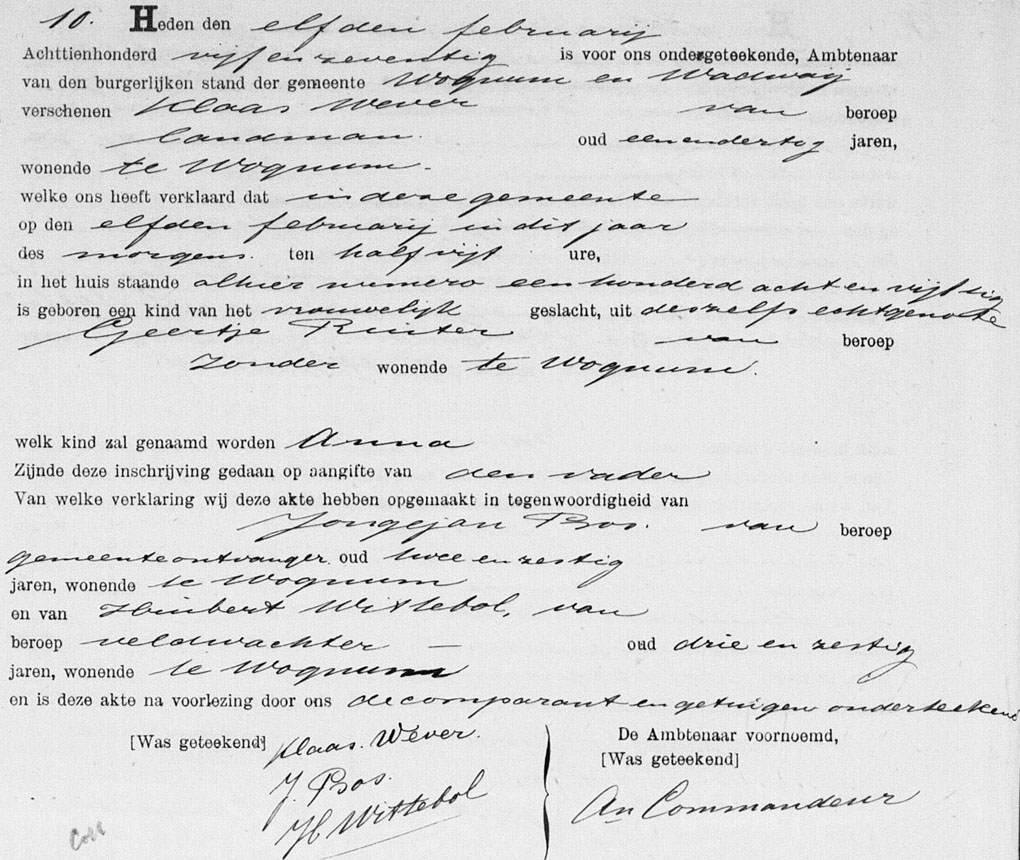 10. Heden den elfden februarij
Achttienhonderd vijf en zeventig is voor ons ondergeteekende, Ambtenaar
van den burgerlijken stand der gemeente Wognum en Wadway
verschenen Klaas Wever van beroep
landman. oud een en dertig jaren,
wonende te Wognum.
welke ons heeft verklaard dat in deze gemeente
op den elfden februarij in dit jaar
des morgens. ten half vijf ure,
in het huis staande alhier numero een honderd acht en vijftig
is geboren een kind van het vrouwelijk geslacht, uit deszelfs echtgenoote
Geertje Ruiter van beroep
zonder wonende te Wognum.
welk kind zal genaamd worden Anna
Zijnde deze inschrijving gedaan op aangifte van den vader
Van welke verklaring wij deze akte hebben opgemaakt in tegenwoordigheid van
Jongejan Bos. van beroep
gemeenteontvanger. oud twee en zestig
jaren, wonende te Wognum
en van Huibert Wittebol, van
beroep veldwachter — oud drie en zestig
jaren, wonende te Wognum
en is deze akte na voorlezing door ons de comparant en getuigen onderteekend
[Was geteekend] Klaas. Wever. De Ambtenaar voornoemd,
J. Bos. [Was geteekend]
H Wittebol An Commandeur